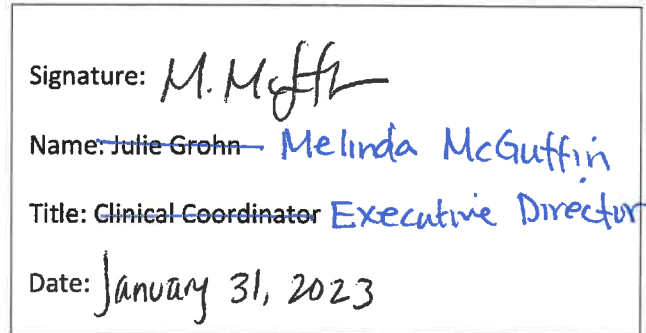 Signature: M. McGff
Name: Julie Grohn Melinda McGuffin
Title: Clinical Coordinator Executive Director
Date: January 31, 2023